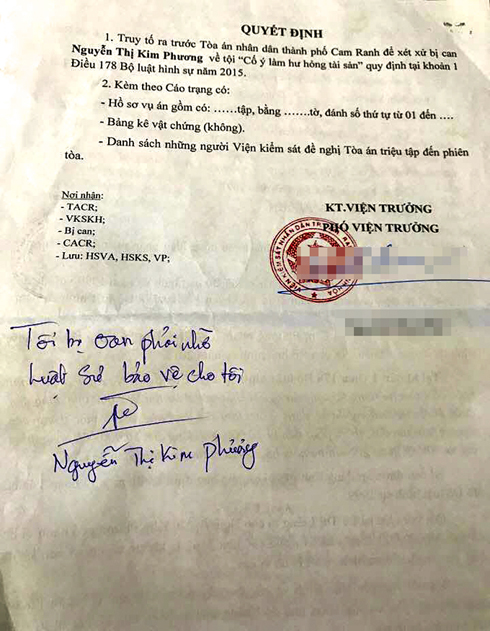 QUYẾT ĐỊNH
1. Truy tố ra trước Tòa án nhân dân thành phố Cam Ranh để xét xử bị can
Nguyễn Thị Kim Phương về tội “Cố ý làm hư hỏng tài sản” quy định tại khoản 1
Điều 178 Bộ luật hình sự năm 2015.
2. Kèm theo Cáo trạng có:
- Hồ sơ vụ án gồm có: ……tập, bằng ……tờ, đánh số thứ tự từ 01 đến ….
- Bảng kê vật chứng (không).
- Danh sách những người Viện kiểm sát đề nghị Tòa án triệu tập đến phiên
tòa.
Nơi nhận:
- TACR;
- VKSKH;
- Bị can;
- CACR;
- Lưu: HSVA, HSKS, VP;
KT.VIỆN TRƯỞNG
PHÓ VIỆN TRƯỞNG
VIỆN KIỂM SÁT NHÂN DÂN
Tôi bị oan phải nhờ
Luật sư bảo vệ cho tôi
Nguyễn Thị Kim Phương